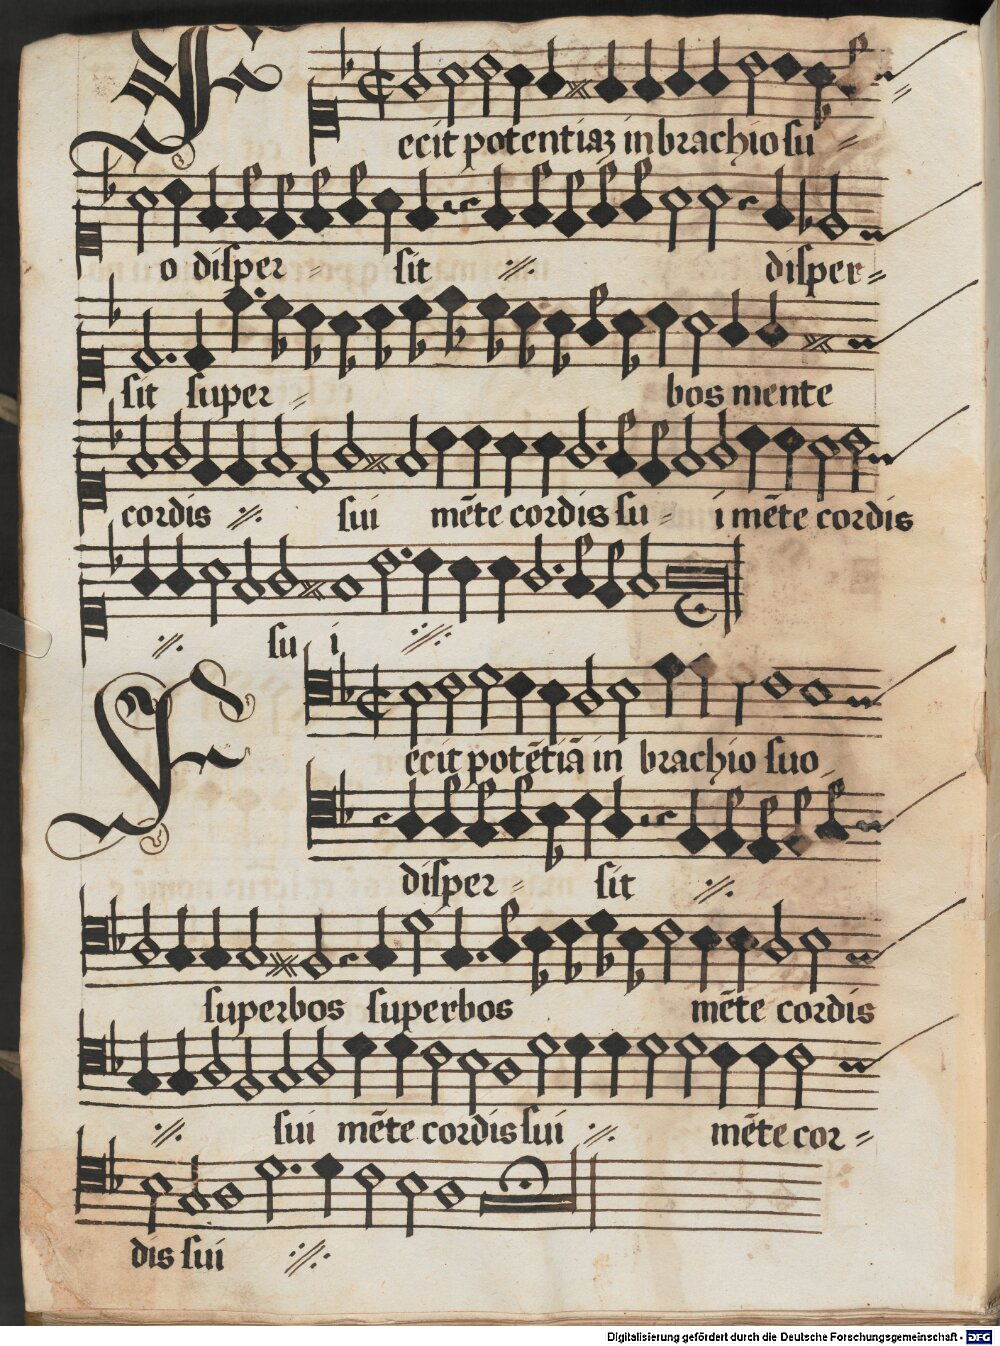 Fecit potentiaʒ in brachio su=
o disper = sit ·//· disper=
sit super = bos mente
cordis ·//· sui mēte cordis su= i mēte cordis
·//· su i ·//·
Fecit potētiā in brachio suo
disper = sit ·//·
superbos superbos mēte cordis
·//· sui mēte cordis sui ·//· mēte cor=
dis sui ·//·
Digitalisierung gefördert durch die Deutsche Forschungsgemeinschaft - DFG